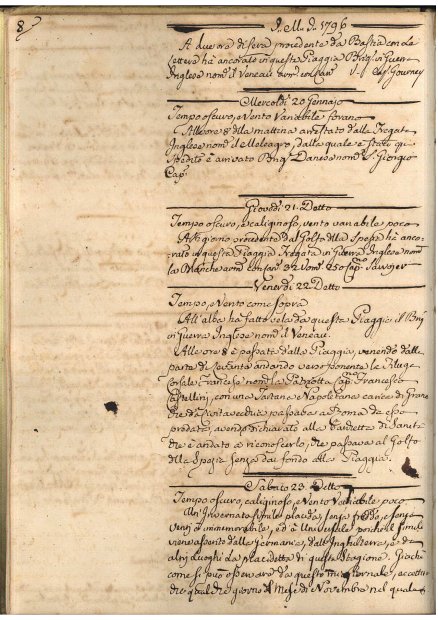 8
1796
A due ora di sera procedente da Bastia con la
lettera hà ancorato in questa Piaggia Brig. in Guerra
Inglese nom. il Veneau
Mercoldì 20 Gennaro
Tempo oscuro, e Vento Variabile forano
All'ore 8 della mattina arrestato dalla Fregata
Inglese nom. il Meleagro, dalla quale è stato qui
spedito è arrivato Danese nom. S. Giorgio
Cap.
Giovedì 21. Detto
Tempo oscuro, e caliginoso, vento variabile poco
A di giorno procedente dal Golfo della Spezia hà anco-
rato in questa Piaggia Fregata in Guerra Inglese nom.
la Manche arm. con can. 32 Uom. 250 Cap. Sawyer
Venerdì 22. Detto
Tempo, e Vento come sopra
All'alba hà fatto vela da questa Piaggia il Brig.
in Guerra Inglese nom. il Veneau.
Alle ore 8 è passata dalla Piaggia, venendo dalla
parte di Levante andando verso ponente la Filuga
Corsale Francese nom. la Patriotta Cap. Francesco
Castellini, con una Tartana Napoletana carica di grano
predata passava a Roma da esso
predata, avendo dichiarato alla Guardietta di Sanità
che è andata a riconoscerlo, che passava al Golfo
della Spezia senza dar fondo alla Piaggia.
Sabato 23. Detto
Tempo oscuro, caliginoso, e Vento Variabile poco
Un'Invernata simile placida, senza freddo, e senza
Venti è immemorabile, ed è Universale poichè il simile
viene asserito dalla Germania, dall'Inghilterra, e da
altri Luoghi la placidezza di questa Stagione. Giachè
come si può osservare da questo mio Giornale, accettua-
che qualche giorno del Mese di Novembre nel quale